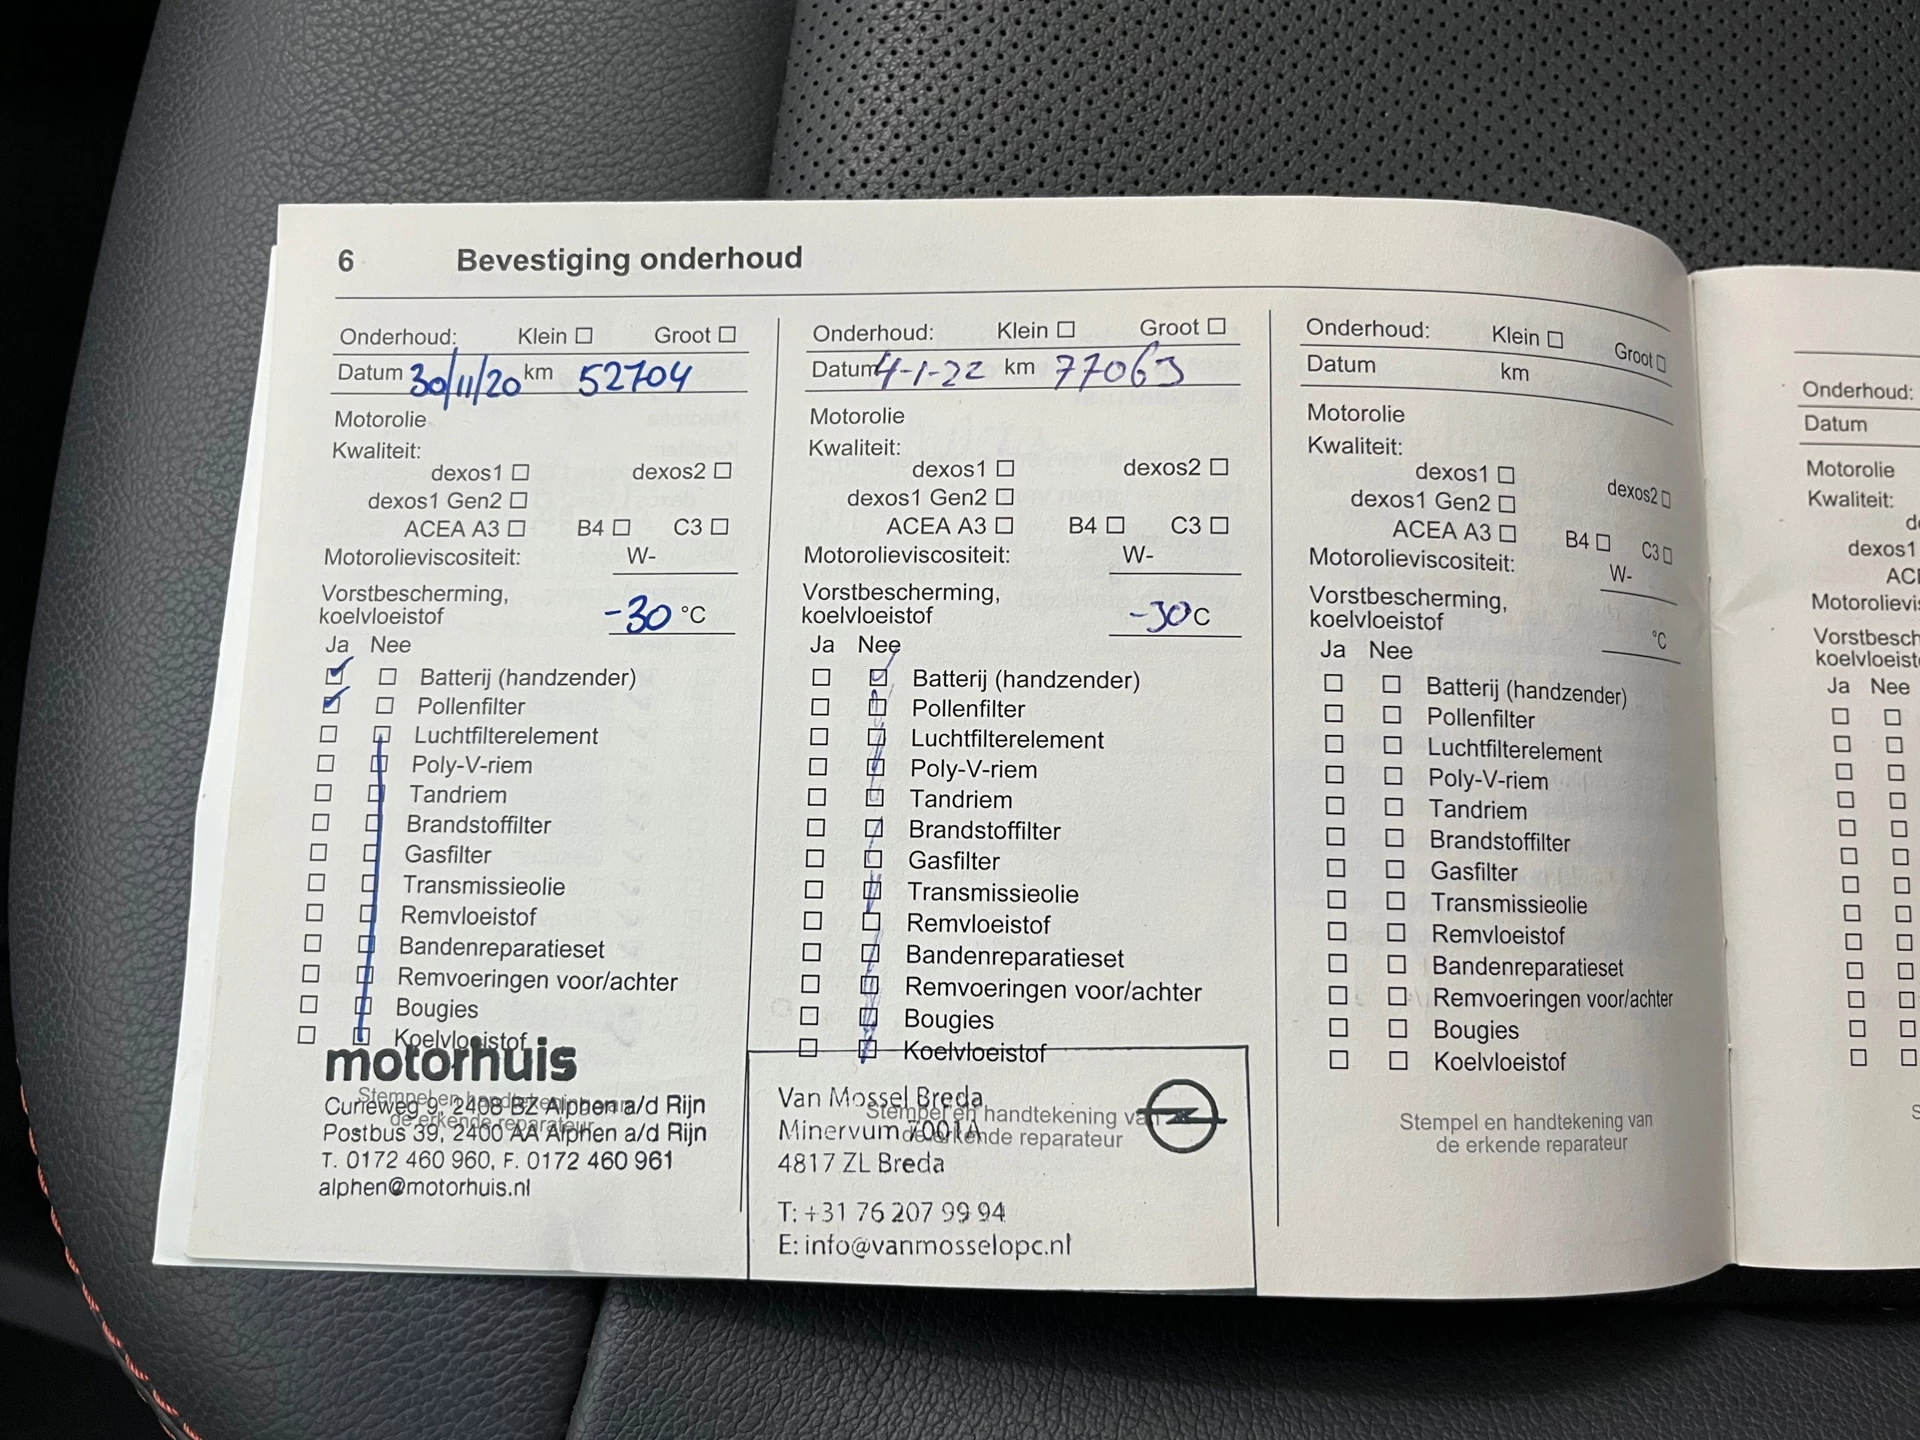 6 Bevestiging onderhoud
Onderhoud: Klein Groot
Datum 30/11/20 km 52704
Motorolie
Kwaliteit:
dexos1 dexos2
dexos1 Gen2
ACEA A3 B4 C3
Motorolieviscositeit: W-
Vorstbescherming,
koelvloeistof -30 °C
Ja Nee
Batterij (handzender)
Pollenfilter
Luchtfilterelement
Poly-V-riem
Tandriem
Brandstoffilter
Gasfilter
Transmissieolie
Remvloeistof
Bandenreparatieset
Remvoeringen voor/achter
Bougies
Koelvloeistof
motorhuis
Stempel en handtekening van
de erkende reparateur
Curieweg 9, 2408 BZ Alphen a/d Rijn
Postbus 39, 2400 AA Alphen a/d Rijn
T. 0172 460 960, F. 0172 460 961
alphen@motorhuis.nl
Onderhoud: Klein Groot
Datum 4-1-22 km 77063
Motorolie
Kwaliteit:
dexos1 dexos2
dexos1 Gen2
ACEA A3 B4 C3
Motorolieviscositeit: W-
Vorstbescherming,
koelvloeistof -30 °C
Ja Nee
Batterij (handzender)
Pollenfilter
Luchtfilterelement
Poly-V-riem
Tandriem
Brandstoffilter
Gasfilter
Transmissieolie
Remvloeistof
Bandenreparatieset
Remvoeringen voor/achter
Bougies
Koelvloeistof
Van Mossel Breda
Stempel en handtekening van
Minervum 7001A
de erkende reparateur
4817 ZL Breda
T: +31 76 207 99 94
E: info@vanmosselopc.nl
Onderhoud: Klein Groot
Datum km
Motorolie
Kwaliteit:
dexos1 dexos2
dexos1 Gen2
ACEA A3 B4 C3
Motorolieviscositeit: W-
Vorstbescherming,
koelvloeistof °C
Ja Nee
Batterij (handzender)
Pollenfilter
Luchtfilterelement
Poly-V-riem
Tandriem
Brandstoffilter
Gasfilter
Transmissieolie
Remvloeistof
Bandenreparatieset
Remvoeringen voor/achter
Bougies
Koelvloeistof
Stempel en handtekening van
de erkende reparateur
Onderhoud:
Datum
Motorolie
Kwaliteit:
de
dexos1
ACE
Motorolievis
Vorstbesch
koelvloeist
Ja Nee
S